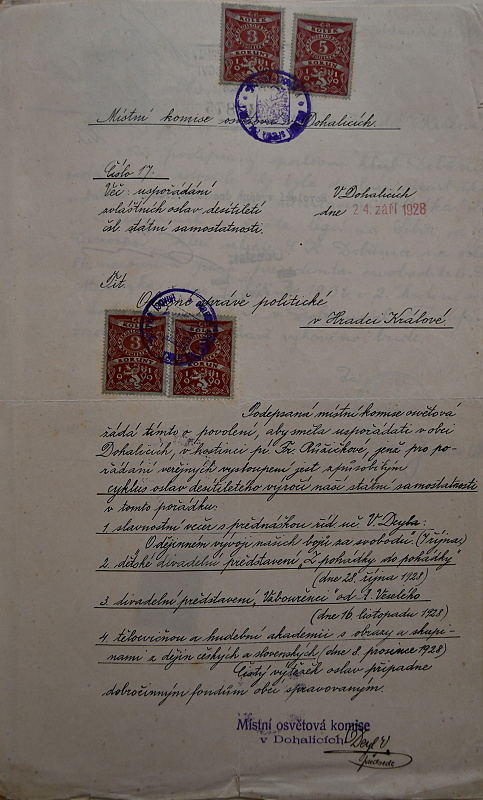 ČS.
KOLEK
3
KORUNY
ČS.
KOLEK
5
KORUN
Místní komise v Dohalicích.
Číslo 17.
Věc: uspořádání
zvláštních oslav desítiletí
čsl. státní samostatnosti.
V Dohalicích
dne 24. září 1928
Tit.
správě politické
v Hradci Králové.
KOLEK
3
KORUNY
KOLEK
Podepsaná místní komise osvětová
žádá tímto o povolení, aby směla uspořádati v obci
Dohalicích, v hostinci p. Fr. Růžičkové, jenž pro po-
řádání veřejných vystoupení jest způsobilým
cyklus oslav desítiletého výročí naší státní samostatnosti
v tomto pořádku:
1. slavnostní večer s přednáškou říd. uč. V. Deyla:
O dějinném vývoji našich bojů za svobodu (října)
2. dětské divadelní představení "Z pohádky do pohádky"
(dne 28. října 1928)
3. divadelní představení od J. Veselého
(dne 16. listopadu 1928)
4. tělocvičnou a hudební akademii s obrazy a skupi-
nami z dějin českých a slovenských (dne 8. prosince 1928)
Čistý výtěžek oslav připadne
dobročinným fondům obcí spravovaným.
Místní osvětová komise
v Dohalicích
Deyl V.
předseda